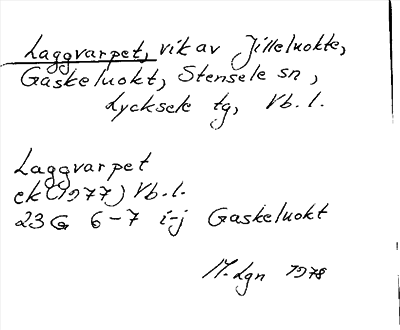 Laggvarpet, vik av Jilleluokte,
Gaskeluokt, Stensele sn,
Lycksele tg, Vb. l.
Laggvarpet
ek (1977) Vb. l.
23G 6-7 i-j Gaskeluokt
M. Lgn 1978